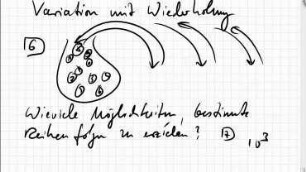 Variation mit Wiederholung
6
Wieviele Möglichkeiten, bestimmte
Reihenfolgen zu erzielen? 7 10³